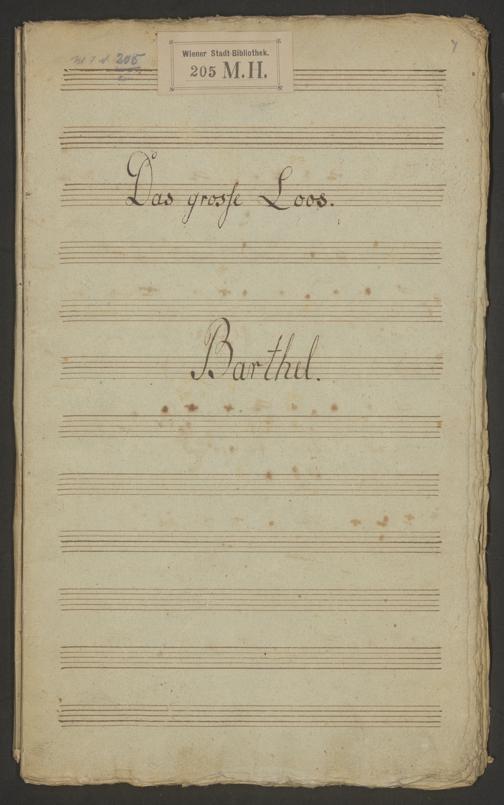 205
Wiener Stadt-Bibliothek.
205 M.H.
Das grosse Loos.
Barthel.